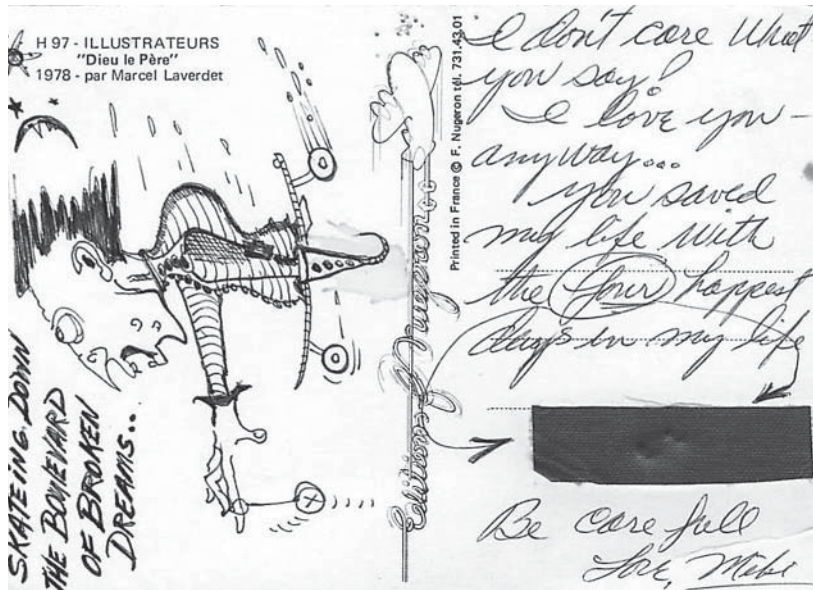 H 97 - ILLUSTRATEURS
"Dieu le Père"
1978 - par Marcel Laverdet
SKATEING DOWN
THE BOULEVARD
OF BROKEN
DREAMS..
Editions F. Nugeron
Printed in France © F. Nugeron tél. 731.43.01
I don't care what
you say!
I love you -
anyway...
you saved
my life with
the four happest
days in my life
Be care full
Love,